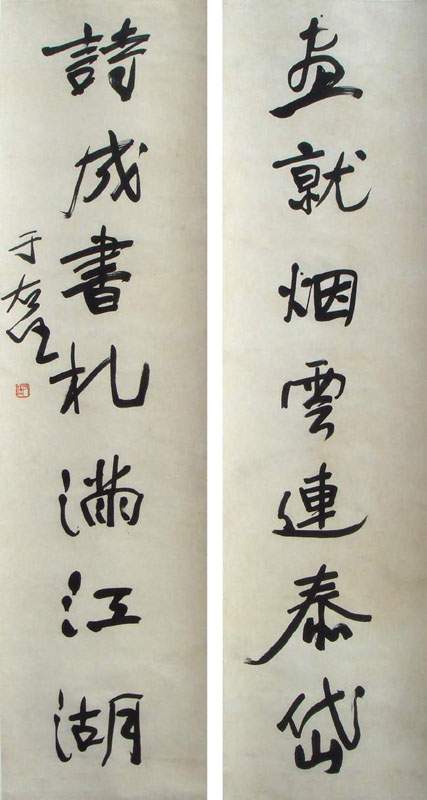 画就烟雲連泰岱
詩成書札满江湖
于右任